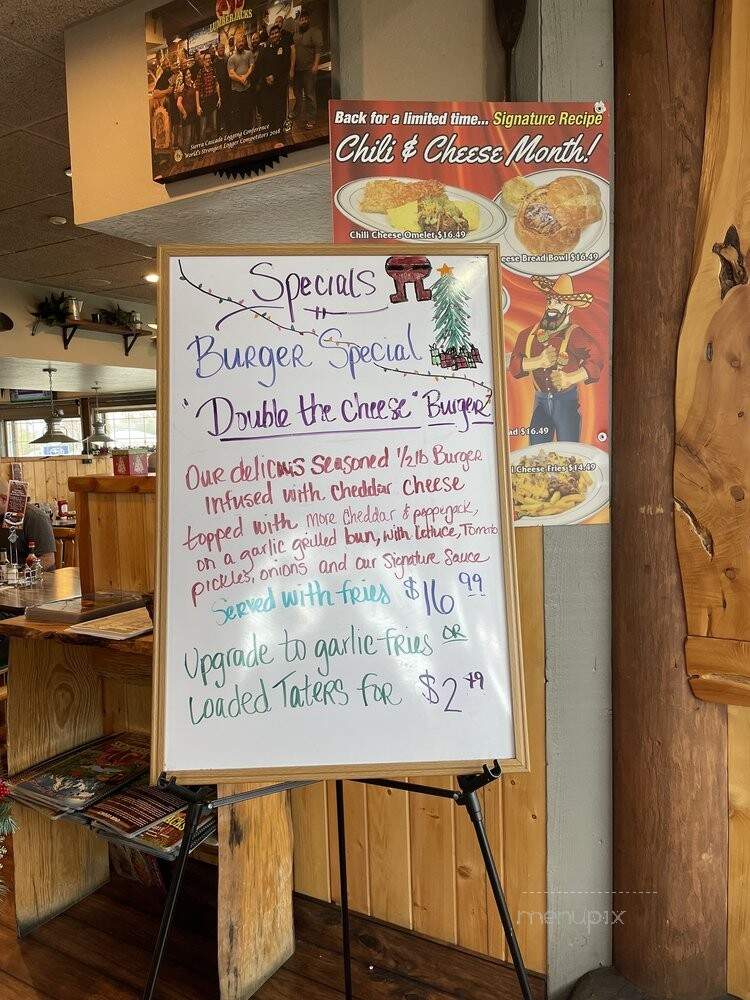 LUMBERJACKS
Sierra Cascade Logging Conference
World's Strongest Logger Competitors 2018
Back for a limited time... Signature Recipe
Chili & Cheese Month!
Chili Cheese Omelet $16.49
ese Bread Bowl $16.49
ad $16.49
i Cheese Fries $14.49
Specials
Burger Special
"Double the Cheese" Burger
Our delicious seasoned 1/2 lb Burger
infused with cheddar cheese
topped with more cheddar & pepperjack,
on a garlic grilled bun, with lettuce, Tomato
pickles, onions and our signature sauce
Served with fries $16 99
Upgrade to garlic fries or
Loaded Taters for $2 49
menupix